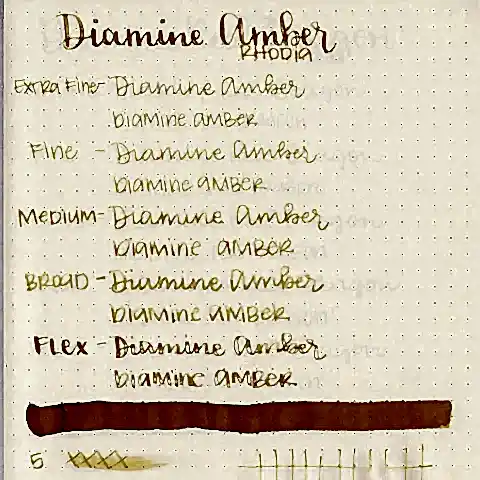 Diamine Amber
RHODIA
Extra Fine - Diamine Amber
Diamine AMBER
Fine - Diamine Amber
Diamine AMBER
MEDIUM - Diamine Amber
Diamine AMBER
BROAD - Diamine Amber
Diamine AMBER
FLEX - Diamine Amber
Diamine AMBER
5 xxxx